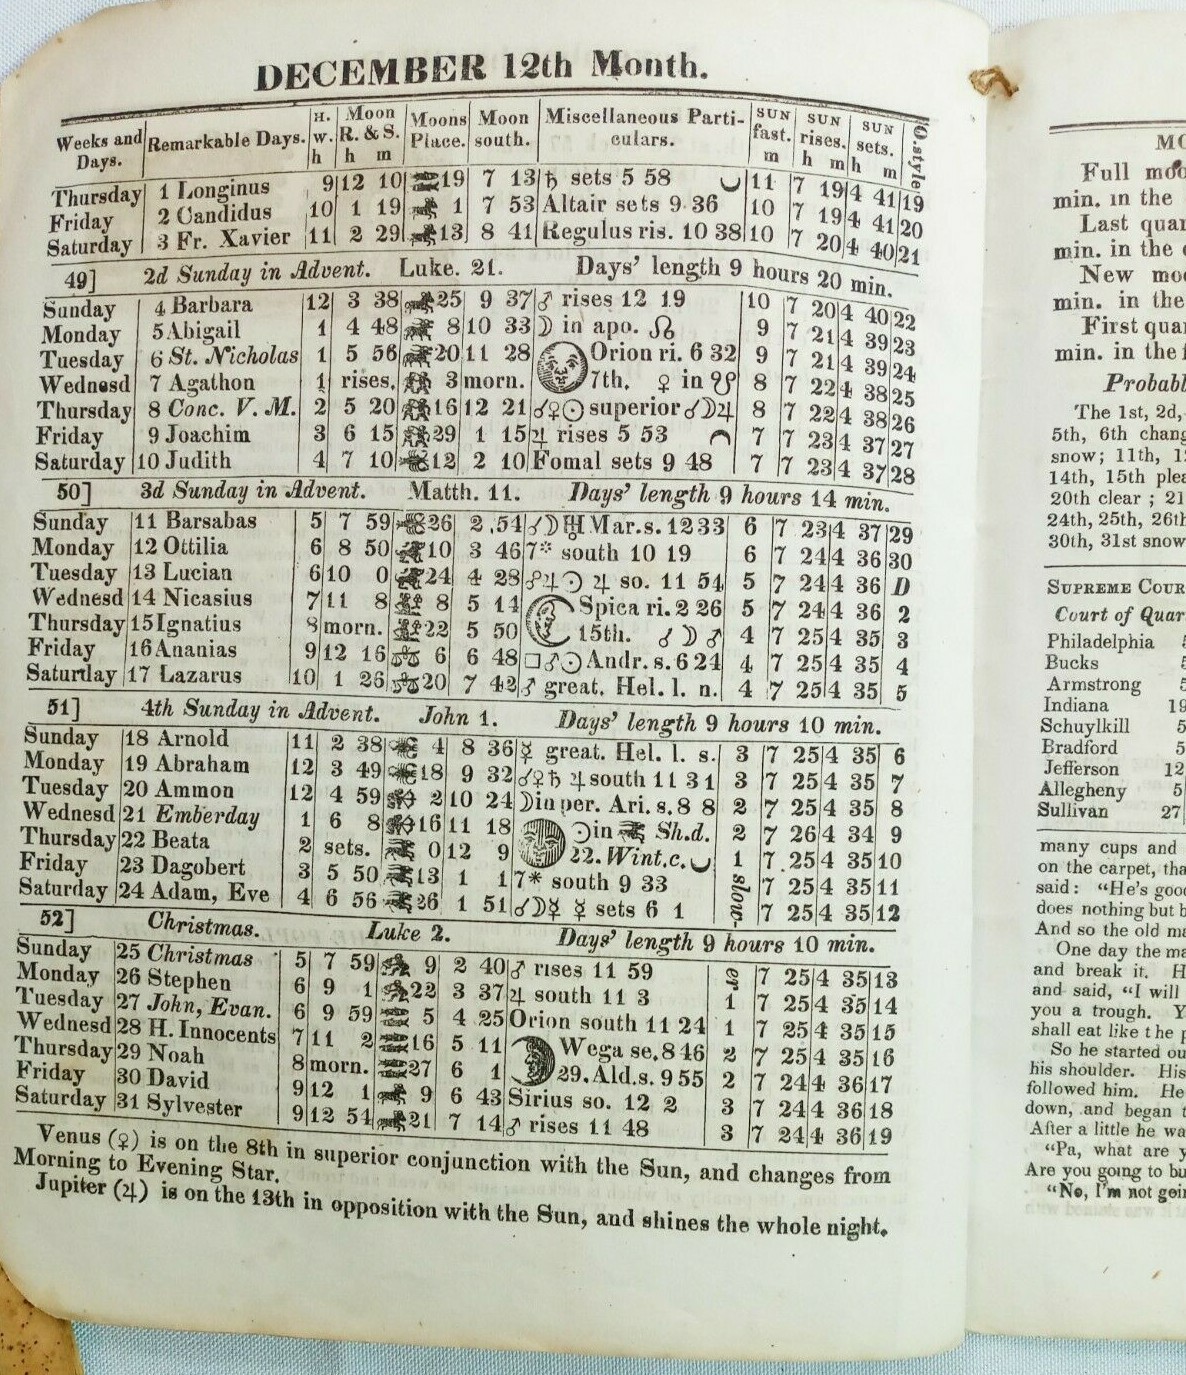 DECEMBER 12th Month.
Weeks and Days. Remarkable Days. H. w. h Moon R. & S. h m Moons Place. Moon south. Miscellaneous Particulars. SUN fast. m SUN rises. h m SUN sets. h m O. style
Thursday 1 Longinus 9 12 10 19 7 13 ♄ sets 5 58 11 7 19 4 41 19
Friday 2 Candidus 10 1 19 1 7 53 Altair sets 9 36 10 7 19 4 41 20
Saturday 3 Fr. Xavier 11 2 29 13 8 41 Regulus ris. 10 38 10 7 20 4 40 21
49] 2d Sunday in Advent. Luke. 21. Days' length 9 hours 20 min.
Sunday 4 Barbara 12 3 38 25 9 37 ♂ rises 12 19 10 7 20 4 40 22
Monday 5 Abigail 1 4 48 8 10 33 ☽ in apo. ☊ 9 7 21 4 39 23
Tuesday 6 St. Nicholas 1 5 56 20 11 28 Orion ri. 6 32 9 7 21 4 39 24
Wednesd 7 Agathon 1 rises. 3 morn. 7th. ♀ in ☋ 8 7 22 4 38 25
Thursday 8 Conc. V. M. 2 5 20 16 12 21 ☌♀☉ superior ☌☽♃ 8 7 22 4 38 26
Friday 9 Joachim 3 6 15 29 1 15 ♃ rises 5 53 7 7 23 4 37 27
Saturday 10 Judith 4 7 10 12 2 10 Fomal sets 9 48 7 7 23 4 37 28
50] 3d Sunday in Advent. Matth. 11. Days' length 9 hours 14 min.
Sunday 11 Barsabas 5 7 59 26 2 54 ☌☽♅ Mar. s. 12 33 6 7 23 4 37 29
Monday 12 Ottilia 6 8 50 10 3 46 7* south 10 19 6 7 24 4 36 30
Tuesday 13 Lucian 6 10 0 24 4 28 ☍♃☉ ♃ so. 11 54 5 7 24 4 36 D
Wednesd 14 Nicasius 7 11 8 8 5 14 Spica ri. 2 26 5 7 24 4 36 2
Thursday 15 Ignatius 8 morn. 22 5 50 15th. ☌ ☽ ♂ 4 7 25 4 35 3
Friday 16 Ananias 9 12 16 6 6 48 □♂☉ Andr. s. 6 24 4 7 25 4 35 4
Saturday 17 Lazarus 10 1 26 20 7 42 ♂ great. Hel. l. n. 4 7 25 4 35 5
51] 4th Sunday in Advent. John 1. Days' length 9 hours 10 min.
Sunday 18 Arnold 11 2 38 4 8 36 ☿ great. Hel. l. s. 3 7 25 4 35 6
Monday 19 Abraham 12 3 49 18 9 32 ☌♀♄ ♃ south 11 31 3 7 25 4 35 7
Tuesday 20 Ammon 12 4 59 2 10 24 ☽ in per. Ari. s. 8 8 2 7 25 4 35 8
Wednesd 21 Emberday 1 6 8 16 11 18 ☉ in Sh. d. 2 7 26 4 34 9
Thursday 22 Beata 2 sets. 0 12 9 22. Wint. c. 1 7 25 4 35 10
Friday 23 Dagobert 3 5 50 13 1 1 7* south 9 33 slow- 7 25 4 35 11
Saturday 24 Adam, Eve 4 6 56 26 1 51 ☌☽☿ ☿ sets 6 1 7 25 4 35 12
52] Christmas. Luke 2. Days' length 9 hours 10 min.
Sunday 25 Christmas 5 7 59 9 2 40 ♂ rises 11 59 er 7 25 4 35 13
Monday 26 Stephen 6 9 1 22 3 37 ♃ south 11 3 1 7 25 4 35 14
Tuesday 27 John, Evan. 6 9 59 5 4 25 Orion south 11 24 1 7 25 4 35 15
Wednesd 28 H. Innocents 7 11 2 16 5 11 Wega se. 8 46 2 7 25 4 35 16
Thursday 29 Noah 8 morn. 27 6 1 29. Ald. s. 9 55 2 7 24 4 36 17
Friday 30 David 9 12 1 9 6 43 Sirius so. 12 2 3 7 24 4 36 18
Saturday 31 Sylvester 9 12 54 21 7 14 ♂ rises 11 48 3 7 24 4 36 19
Venus (♀) is on the 8th in superior conjunction with the Sun, and changes from
Morning to Evening Star.
Jupiter (♃) is on the 13th in opposition with the Sun, and shines the whole night.
MO
Full moo
min. in the
Last quar
min. in the
New moo
min. in the
First quar
min. in the f
Probabl
The 1st, 2d,
5th, 6th chang
snow; 11th, 1
14th, 15th plea
20th clear; 21
24th, 25th, 26th
30th, 31st snow
SUPREME COUR
Court of Quar
Philadelphia
Bucks
Armstrong 5
Indiana 19
Schuylkill 5
Bradford 5
Jefferson 12
Allegheny 5
Sullivan 27
many cups and
on the carpet, tha
said: "He's good
does nothing but b
And so the old ma
One day the ma
and break it. H
and said, "I will
you a trough. Y
shall eat like the p
So he started ou
his shoulder. His
followed him. He
down, and began t
After a little he wa
"Pa, what are y
Are you going to bu
"No, I'm not goin